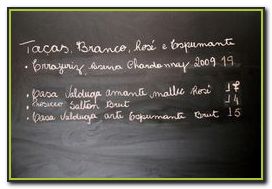 Taças, Branco, Rosé e Espumante
• Errazuriz, Chardonnay 2009 19
• Casa Valduga amante mallec Rosé 17
• Prosecco Salton Brut 14
• Casa Valduga arte Espumante Brut 15